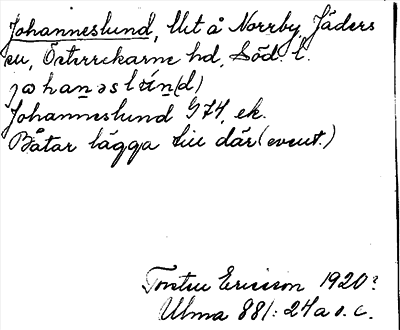 Johanneslund, Uut å Norrby, Jäders
sn, Österrekarne hd, Söd. l.
johan̲əslún̲(d)
Johanneslund G74, ek.
Båtar lägga till där (event.)
Torsten Ericsson 1920?
Ulma 881:24 a o. c.